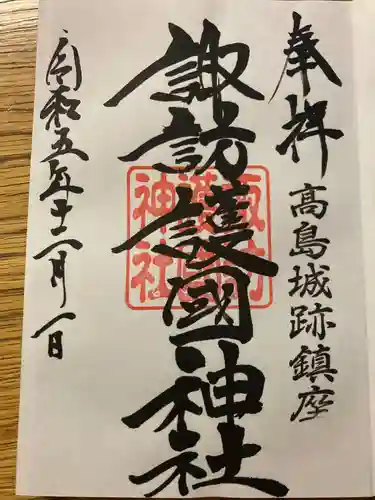 奉拝
高島城跡鎮座
諏訪護國神社
諏訪護國神社
令和五年十二月一日